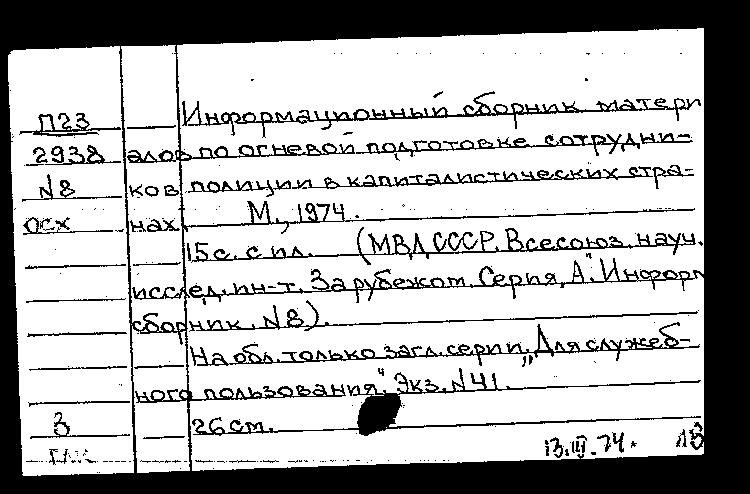 П23 Информационный сборник матери
2938 алов по огневой подготовке сотрудни=
N8 ков полиции в капиталистических стра=
осх нах. М., 1974.
15с. с ил. (МВД СССР. Всесоюз. науч.
исслед. ин-т. Зарубежом. Серия „А". Информ
сборник. N8).
На обл. только загл. серии. „Для служеб-
ного пользования". Экз. N41.
3 26см.
13.III.74. 18